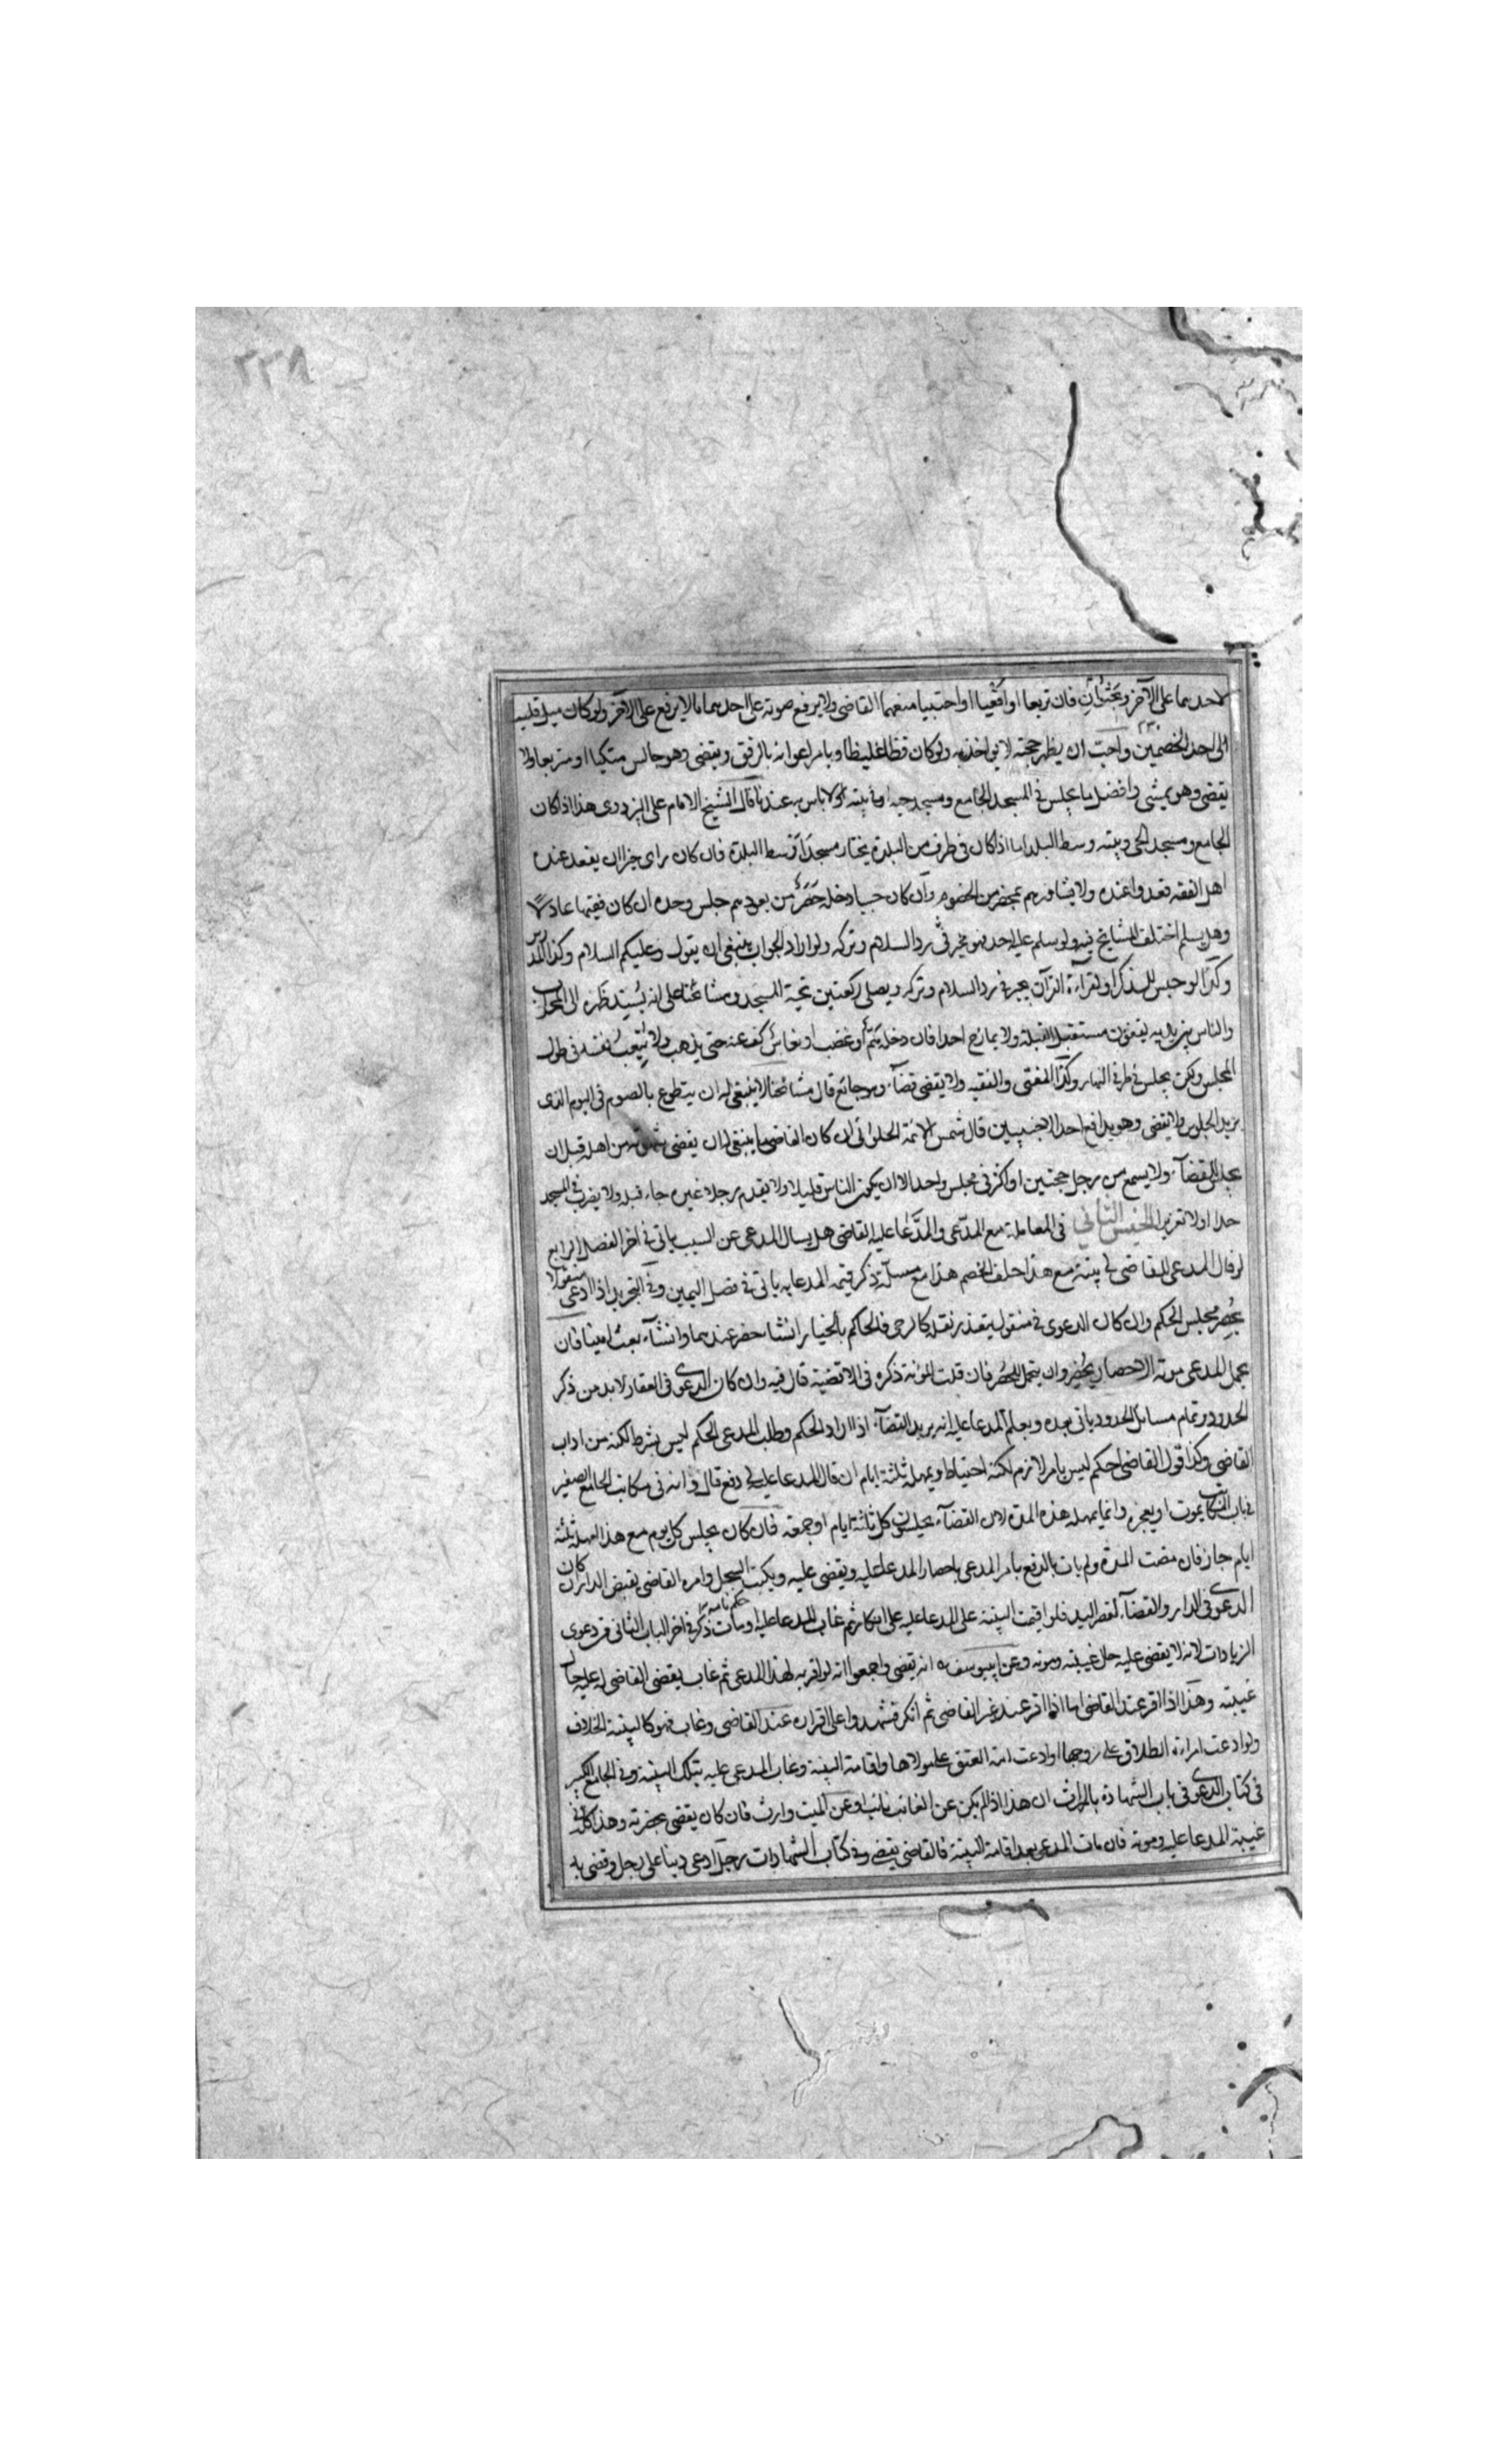 ٢٣٨
لاحدهما على الآخر ويجثوان فان تربعا او اقعيا او احتبيا منعهما القاضى ولا يرفع صوته على احدهما مالا يرفع على الآخر ولو كان ميل قلبه
الى احد الخصمين واحب ان يظهر حجته لا يواخذ به ولو كان فظا غليظا ويامر اعوانه بالرفق ويقضى وهو جالس متكيا او متربعا ولا
يقضى وهو يمشى وافضل ما يجلس فى المسجد الجامع ومسجد حيه او بيته ولا باس به عندنا قال الشيخ الامام على البزدوى هذا اذا كان
الجامع ومسجد الحى وبيته وسط البلد اما اذا كان فى طرف من البلدة يختار مسجدا وسط البلدة فان كان راى خيرا ان يقعد عنده
اهل الفقه قعدوا عنده ولا يشاورهم بمحضر من الخصوم وان كان حييا دخله حصر من بعودهم جلس وحده ان كان فقيها عادلا
وهل يسلم اختلف المشايخ فيه ولو سلم عليه احد فهو مخير فى رد السلام وتركه ولو اراد الجواب ينبغى ان يقول وعليكم السلام وكذا المدرس
وكذا لو جلس للذكر او لقراءة القرآن يخير فى رد السلام وتركه ويصلى ركعتين تحية المسجد ومشائخنا على انه يسند ظهره الى المحراب
والناس بين يديه يقفون مستقبل القبلة ولا يمازح احدا فان دخله هم أو غضب او نعاس كف عنه حتى يذهب ولا يتعب نفسه فى طول
المجلس ولكن يجلس فى طرفى النهار وكذا المفتى والفقيه ولا يقضى قضاء وهو جائع قال مشائخنا لا ينبغى له ان يتطوع بالصوم فى اليوم الذى
يريد الجلوس ولا يقضى وهو يدافع احد الاخبثين قال شمس الائمة الحلوائى ان كان القاضى شابا ينبغى ان يقضى شهوته من اهله قبل ان
يجلس للقضاء ولا يسمع من رجل حجتين او اكثر فى مجلس واحد الا ان يكون الناس قليلا ولا يقدم رجلا غيره جاء قبله ولا يضرب فى المسجد
حدا ولا تعزيرا الجنس الثانى فى المعاملة مع المدعى والمدعا عليه القاضى هل يسال المدعى عن السبب ياتى فى اخر الفصل الرابع
لو قال المدعى للقاضى لى بينة مع هذا حلف الخصم هذا مع مسئلة ذكر قيمة المدعا به ياتى فى فصل اليمين وفى التجريد اذا ادعى منقولا
يحضر مجلس الحكم وان كان الدعوى فى منقول يتعذر نقله كالرحى فالحاكم بالخيار ان شاء حضر عندهما وان شاء بعث امينا فان
تحمل المدعى مونة الاحضار يحضر وان يتحمل المحضر فان قلت المؤنة ذكره فى الاقضية قال فيه وان كان الدعوى فى العقار لا بد من ذكر
الحدود وتمام مسائل الحدود ياتى بعده ويعلم المدعا عليه انه يريد القضاء اذا اراد الحكم وطلب المدعى الحكم ليس بشرط لكنه من اداب
القاضى وكذا قول القاضى احكم ليس بامر لازم لكنه احتياط ويمهله ثلثة ايام ان قال المدعا عليه لى دفع قال وانه فى مكاتب الجامع الصغير
فى باب المكاتب يموت او يعجز وانما يمهله هذه المدة لان القضاء يجلسون كل ثلثة ايام او جمعة فان كان يجلس كل يوم مع هذا امهله ثلثة
ايام جاز فان مضت المدة ولم يات بالدفع يامر المدعى باحضار المدعا عليه ويقضى عليه ويكتب السجل وامره القاضى بقبض الدار ان كان
الدعوى فى الدار والقضاء لقصر اليد فلو اقيمت البينة على المدعا عليه على انكاره ثم غاب المدعا عليه او مات حكم نامه ذكر فى اخر الباب الثانى من دعوى
الزيادات لانه لا يقضى عليه حال غيبته وموته وعن ابى يوسف رہ انه يقضى واجمعوا انه لو اقر به لهذا المدعى ثم غاب يقضى القاضى له عليه حال
غيبته وهذا اذا اقر عند القاضى اما اذا اقر عند غير القاضى ثم انكر فشهدوا على اقراره عند القاضى وغاب فهو كالبينة الخلاف
ولو ادعت امراة الطلاق على زوجها او ادعت امة العتق على مولاها واقامة البينة وغاب المدعى عليه بتلك البينة وفى الجامع الكبير
فى كتاب الدعوى فى باب الشهادة بالميراث ان هذا اذا لم يكن عن الغائب نائب او عن الميت وارث فان كان يقضى بحضرته وهذا كله فى
غيبة المدعا عليه وموته فان مات المدعى بعد اقامة البينة فالقاضى يقضى وفى كتاب الشهادات رجل ادعى دينا على رجل وقضى به